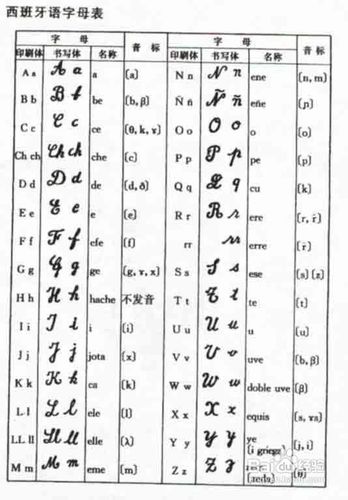 西班牙语字母表
字 母 音 标 字 母 音 标
印刷体 书写体 名称 印刷体 书写体 名称
A a A a a [a] N n N n ene [n, m]
B b B b be [b, β] Ñ ñ Ñ ñ eñe [ɲ]
C c C c ce [θ, k, ɤ] O o O o o [o]
Ch ch Ch ch che [c] P p P p pe [p]
D d D d de [d, ð] Q q Q q cu [k]
E e E e e [e] R r R r ere [r, r̄]
F f F f efe [f] rr rr erre [r̄]
G g G g ge [g, ɤ, x] S s S s ese [s] [z]
H h H h hache 不发音 T t T t te [t]
I i I i i [i] U u U u u [u]
J j J j jota [x] V v V v uve [b, β]
K k K k ca [k] W w W w doble uve [β]
L l L l ele [l] X x X x equis [s, ɤs]
LL ll LL ll elle [λ] Y y Y y ye (i griega) [j, i]
M m M m eme [m] Z z Z z [θ]